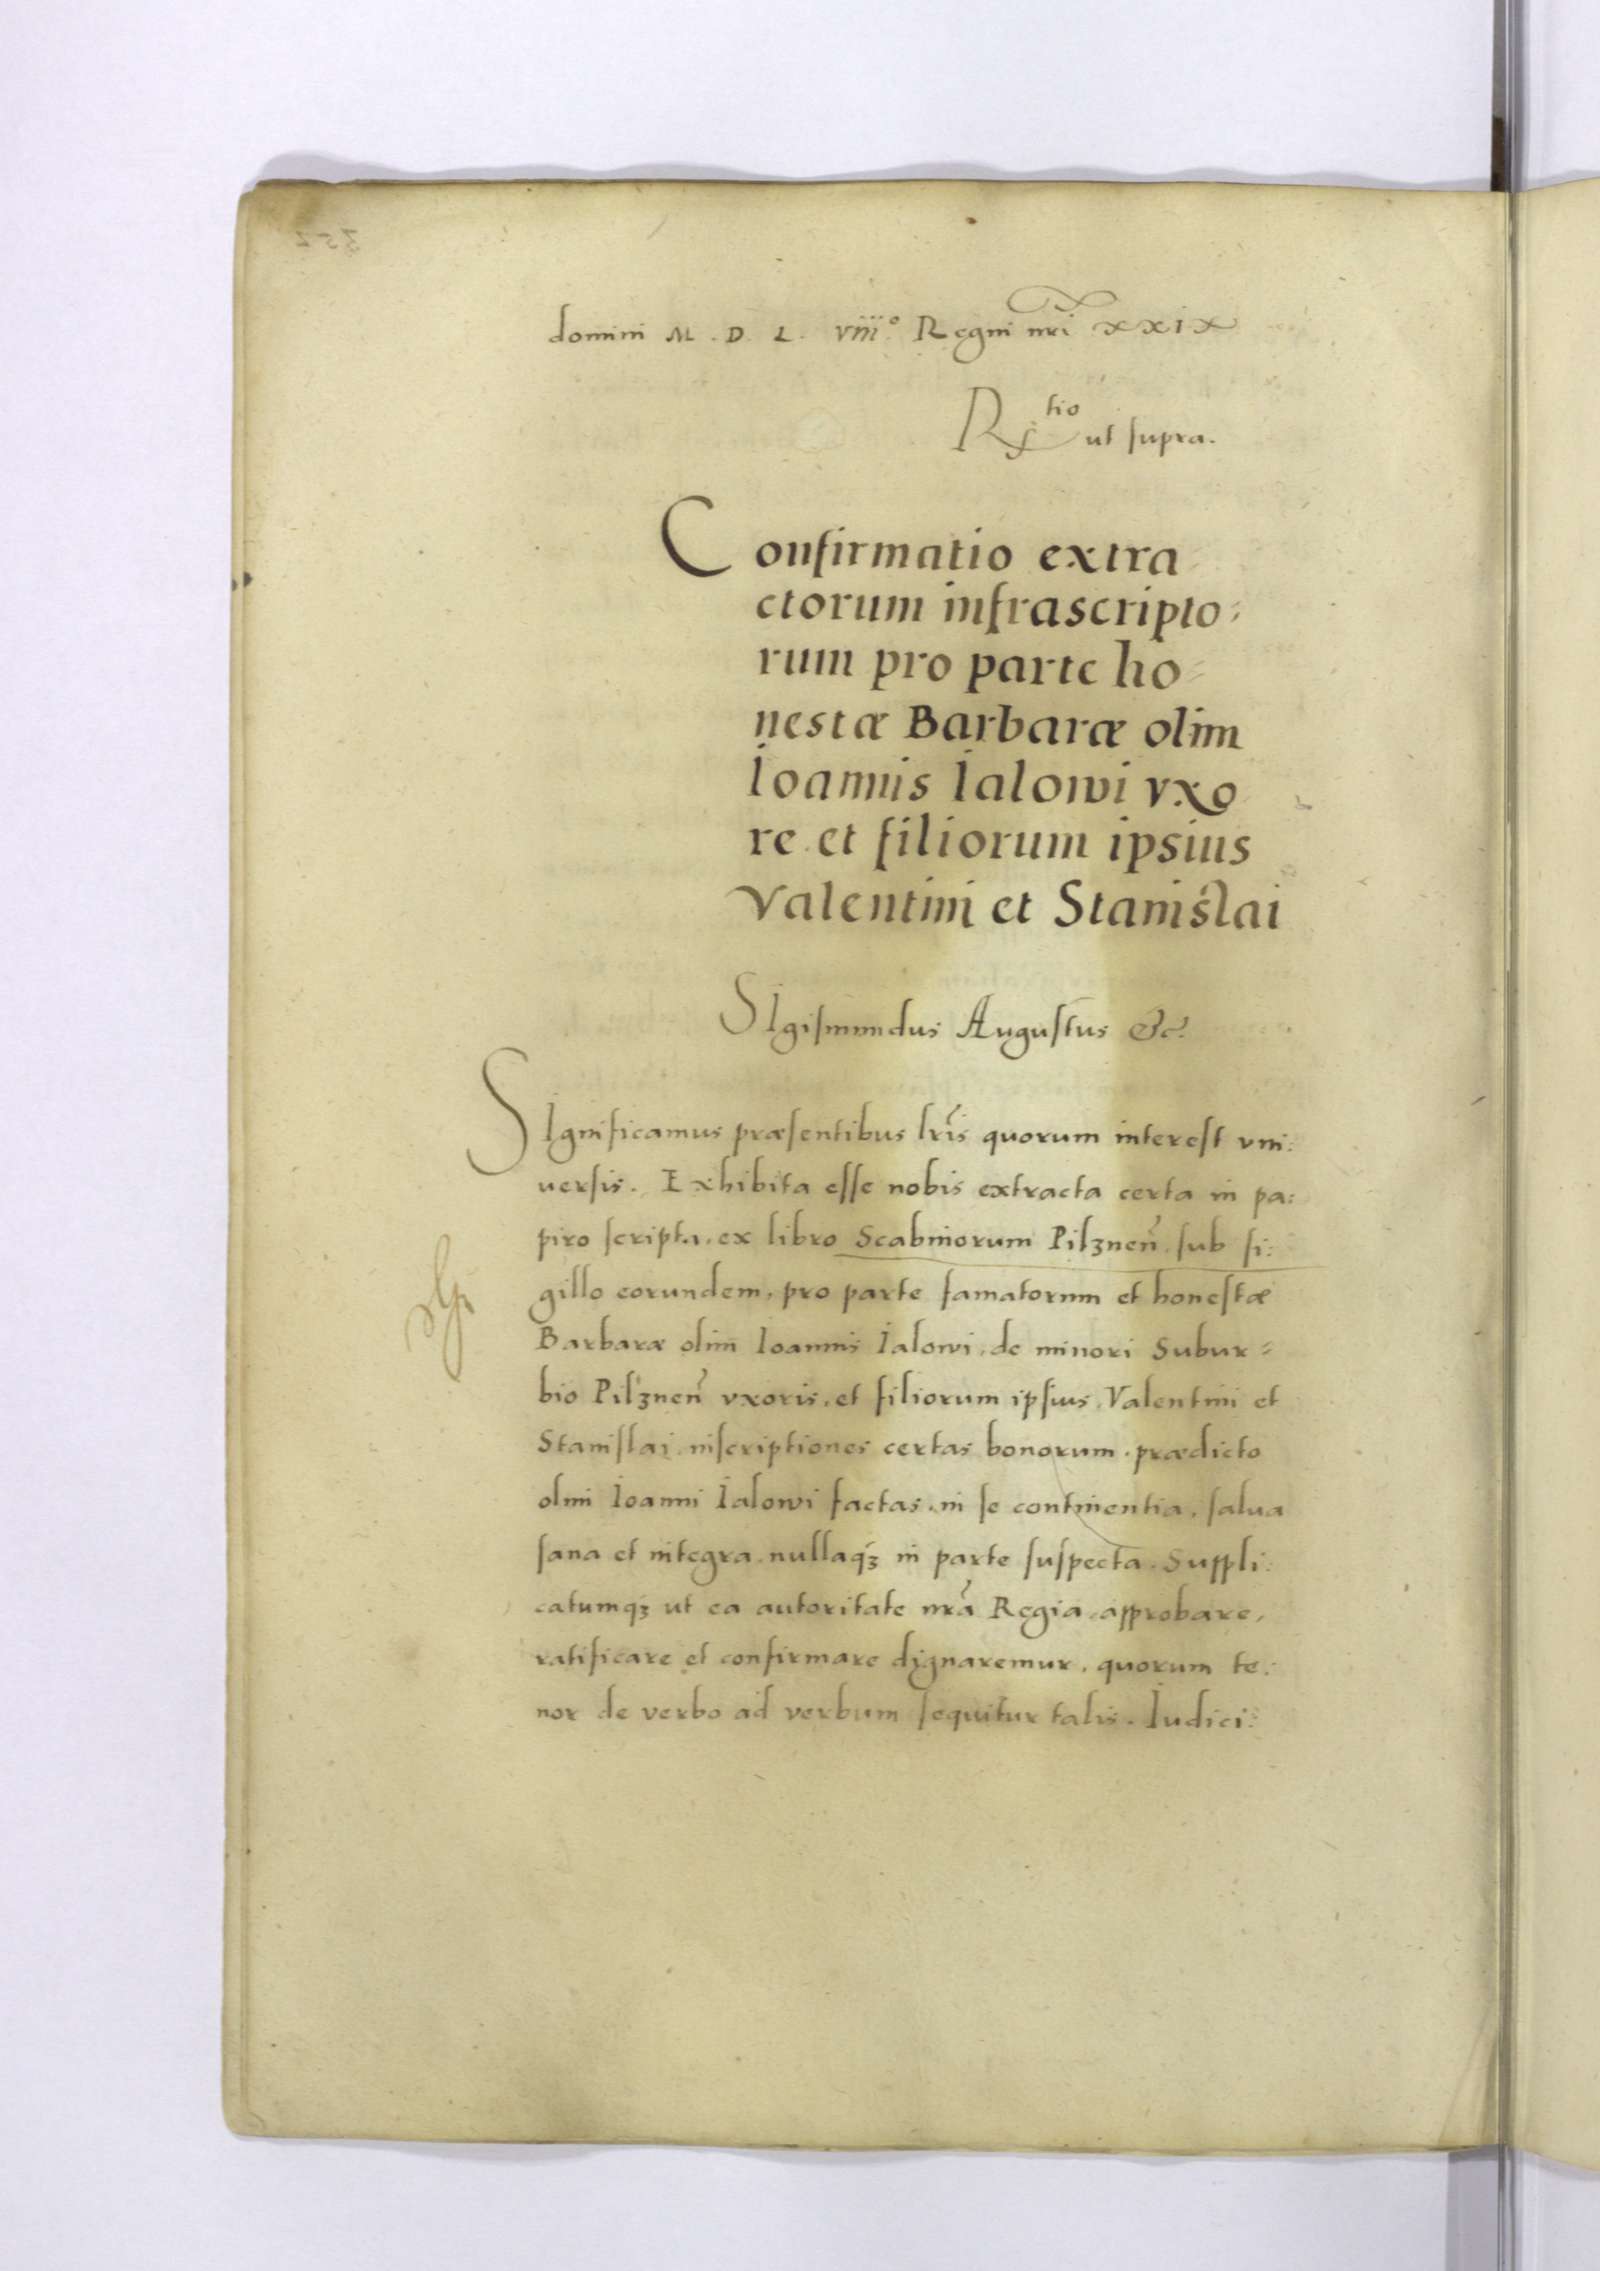 domini M. D. L. viii° Regni nri XXIX
Rtio ut supra.
Confirmatio extra
ctorum infrascripto-
rum pro parte ho-
nestæ Barbaræ olim
Ioannis Ialowi vxo
re et filiorum ipsius
Valentini et Stanislai
SIgismundus Augustus &c.
SIgnificamus præsentibus lris quorum interest vni:
uersis. Exhibita esse nobis extracta certa in pa:
piro scripta, ex libro Scabinorum Pilznen sub si:
gillo eorundem, pro parte famatorum et honestæ
Barbaræ olim Ioannis Ialowi, de minori Subur-
bio Pilznen vxoris, et filiorum ipsius, Valentini et
Stanislai, inscriptiones certas bonorum, prædicto
olim Ioanni Ialowi factas, in se continentia, salua
sana et integra, nullaqꝫ in parte suspecta. Suppli:
catumqꝫ ut ea autoritate nra Regia, approbare,
ratificare et confirmare dignaremur, quorum te:
nor de verbo ad verbum sequitur talis. Iudici: